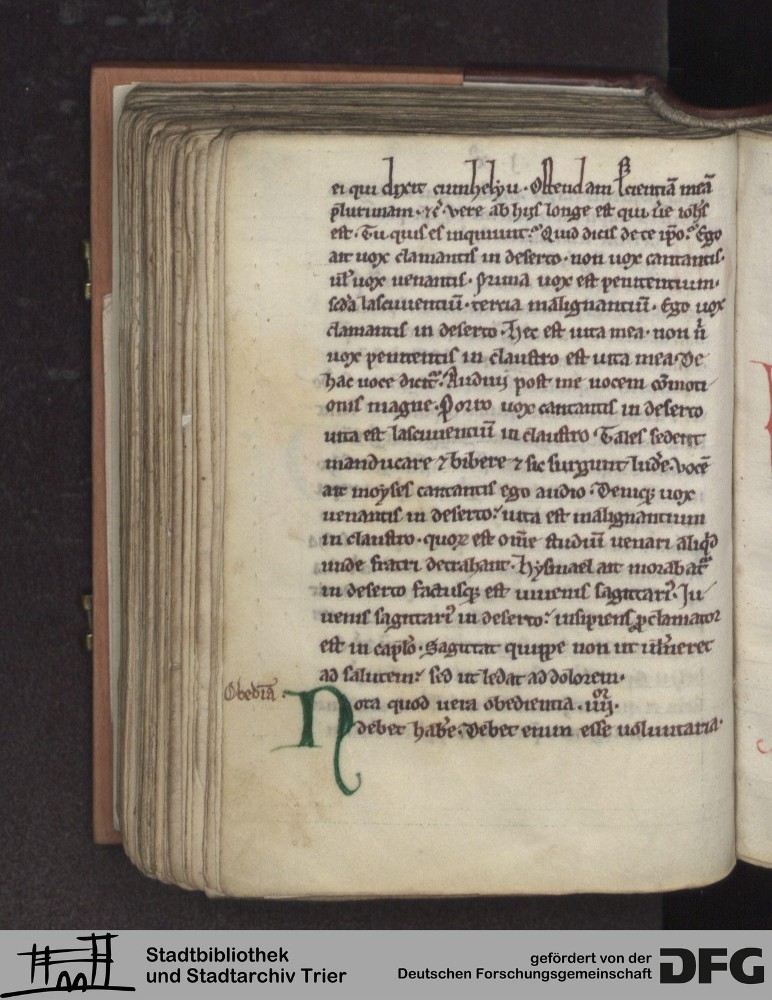 ei qui dixit cum helyu. Ostendam scientiā meā
plurimam. ⁊c̄. vere ab hijs longe est qui
est. Tu quis es inquiunt? Quid dicis de te ip̄o? Ego
ait uox clamantis in deserto. non uox cantantis.
ul̄ uox uenantis. prima uox est penitentium.
sc̄da lasciuientiū. tercia malignantiū. Ego uox
clamantis in deserto. hec est uita mea. non n̄
uox penitentis in claustro est uita mea. De
hac uoce dicit᷑. Audiui post me uocem cōmoti
onis magne. Porro uox cantantis in deserto
uita est lasciuientiū in claustro. Tales sedent
manducare ⁊ bibere ⁊ sic surgunt ludere. vocē
ait moyses cantantis ego audio. Deniq; uox
uenantis in deserto: uita est malignantium
in claustro. quoꝝ est om̄e studiū uenari aliqd
unde fratri detrahant. hysmael ait morabat᷑
in deserto factusq; est iuuenis sagittari᷒. Iu
uenis sagittari᷒ in deserto: insipiens ꝓclamator
est in capl̄o. Sagittat quippe non ut uulneret
ad salutem: sed ut ledat ad dolorem.
Obediā.
Nota quod uera obedientia .iiiior.
debet habe. Debet enim esse uoluntaria.
Stadtbibliothek
und Stadtarchiv Trier
gefördert von der
Deutschen Forschungsgemeinschaft
DFG